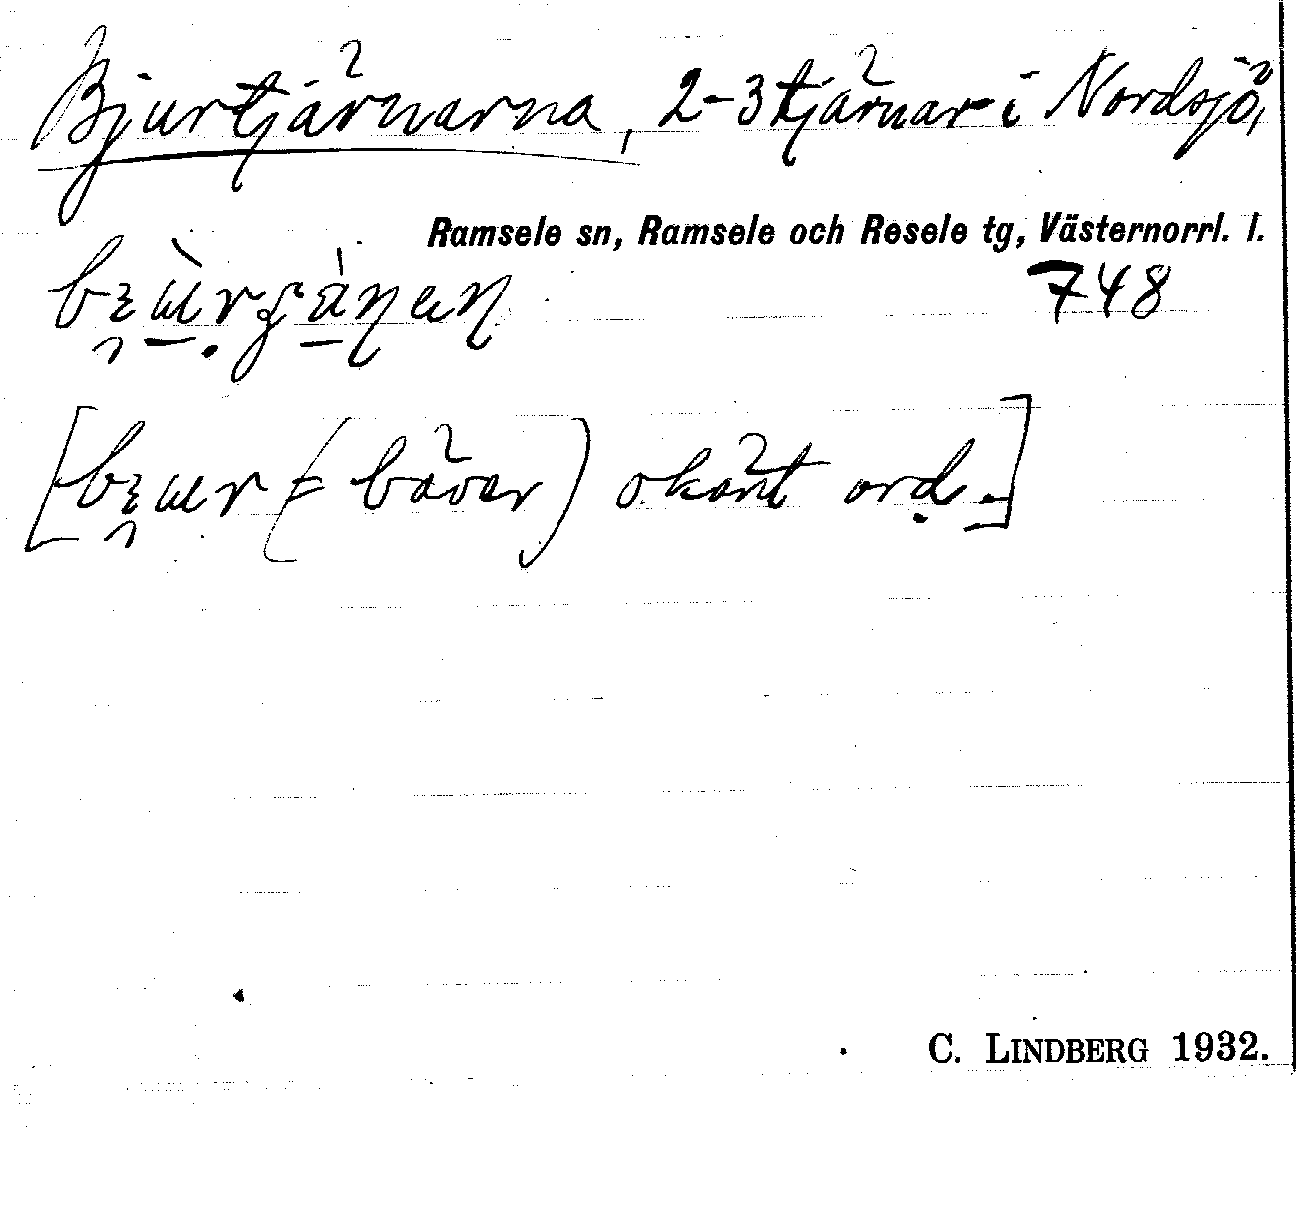 Bjurtjärnarna, 2-3 tjärnar i Nordsjö,
Ramsele sn, Ramsele och Resele tg, Västernorrl. l.
748
(= bäver) okänt ord.]
C. LINDBERG 1932.